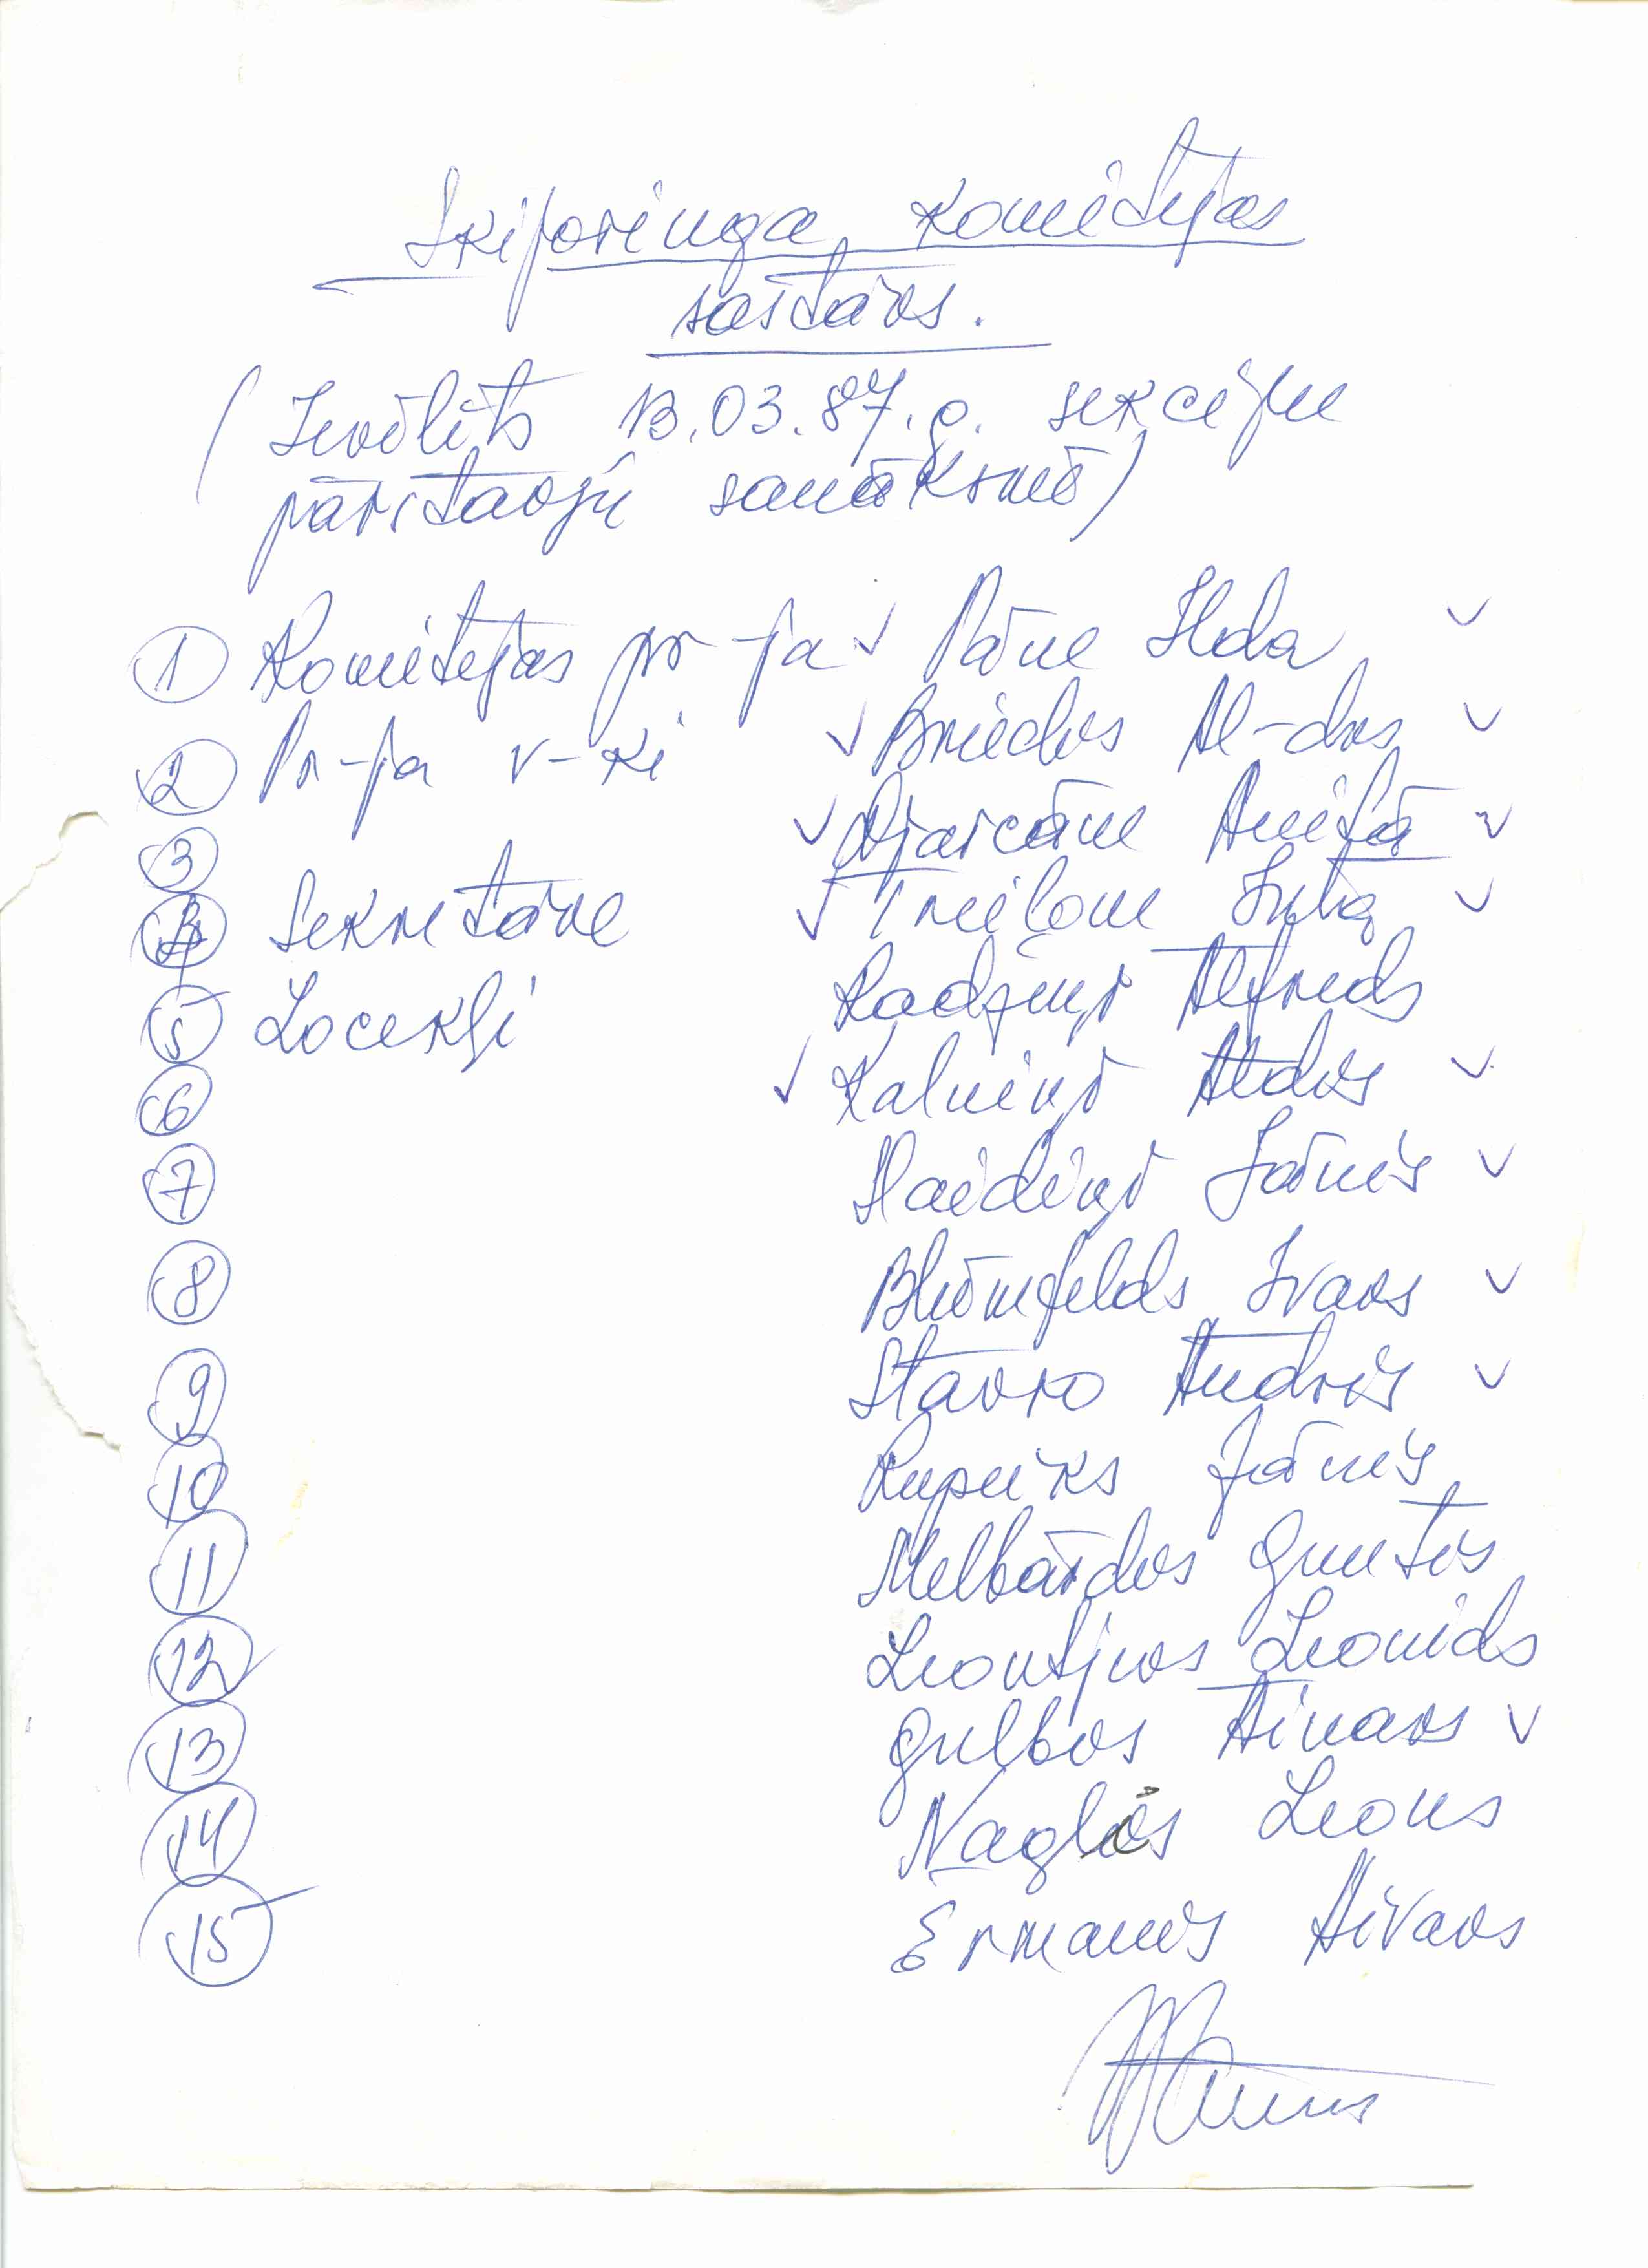 Skijoringa komitejas
sastāvs.
(Ievēlēts 13.03.87.g. sekciju
pārstāvju sanāksmē)
1 Komitejas pr-ja ✓ Pāne Ilda ✓
2 Pr-ja v-ki ✓ Briedis Al-drs ✓
3 ✓ Anita ✓
4 Sekretāre ✓ Inta ✓
5 Locekļi Radziņš Alfreds
6 ✓ Kalniņš Aldis ✓
7 Haidiņš Jānis ✓
8 Blūmfelds Ivars ✓
9 Stavro Andris ✓
10 Rupeiks Jānis
11 Melbārdis Guntis
12 Leontjevs Leonids
13 Gulbis Ainars ✓
14 Naglis Leons
15 Ermanis Aivars